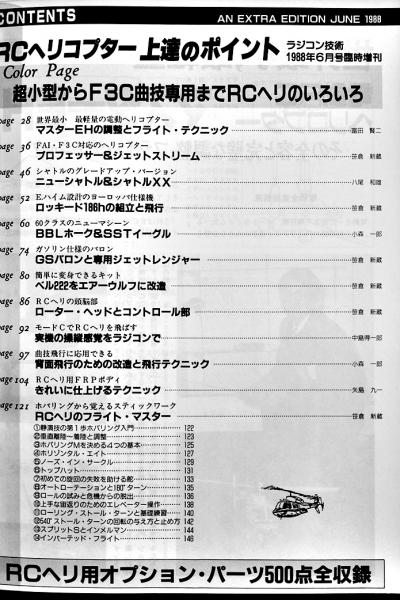 CONTENTS
AN EXTRA EDITION JUNE 1988
RCヘリコプター上達のポイント
ラジコン技術
1988年6月号臨時増刊
Color Page
超小型からF3C曲技専用までRCヘリのいろいろ
page 28 世界最小 最軽量の電動ヘリコプター
マスターEHの調整とフライト・テクニック 富田 賢二
page 36 FAI・F3C対応のヘリコプター
プロフェッサー&ジェットストリーム 笹倉 新蔵
page 46 シャトルのグレードアップ・バージョン
ニューシャトル&シャトルXX 八尾 和雄
page 52 E.ハイム設計のヨーロッパ仕様機
ロッキード186hの組立と飛行 笹倉 新蔵
page 60 60クラスのニューマシーン
BBLホーク&SSTイーグル 小森 一郎
page 74 ガソリン仕様のバロン
GSバロンと専用ジェットレンジャー 笹倉 新蔵
page 80 簡単に変身できるキット
ベル222をエアーウルフに改造 笹倉 新蔵
page 86 RCヘリの頭脳部
ローター・ヘッドとコントロール部 笹倉 新蔵
page 92 モードCでRCヘリを飛ばす
実機の操縦感覚をラジコンで 中島得一郎
page 97 曲技飛行に応用できる
背面飛行のための改造と飛行テクニック 小森 一郎
page 104 RCヘリ用FRPボディ
きれいに仕上げるテクニック 矢島 九一
page 121 ホバリングから覚えるスティックワーク
RCヘリのフライト・マスター 笹倉 新蔵
①静演技の第1歩ホバリング入門 122
②垂直離陸〜着陸と調整 123
③ホバリングMを決める4つの基本 125
④ホリゾンタル・エイト 127
⑤ノーズ・イン・サークル 129
⑥トップハット 131
⑦初めての旋回の失敗を助ける舵 133
⑧オートローテーションと180°ターン 135
⑨ロールの試みと危機からの脱出 136
⑩上手な宙返りのためのエレベーター操作 138
⑪ローリング・ストール・ターンと基礎練習 140
⑫540°ストール・ターンの回転の与え方と止め方 142
⑬スプリットSとインメルマン 144
⑭インバーテッド・フライト 146
RCヘリ用オプション・パーツ500点全収録